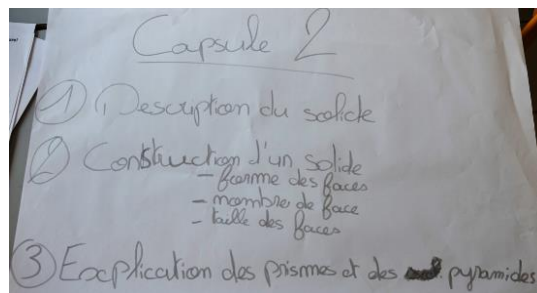 Capsule 2
① Description du solide
② Construction d'un solide
- forme des faces
- nombre de face
- taille des faces
③ Explication des prismes et des pyramides